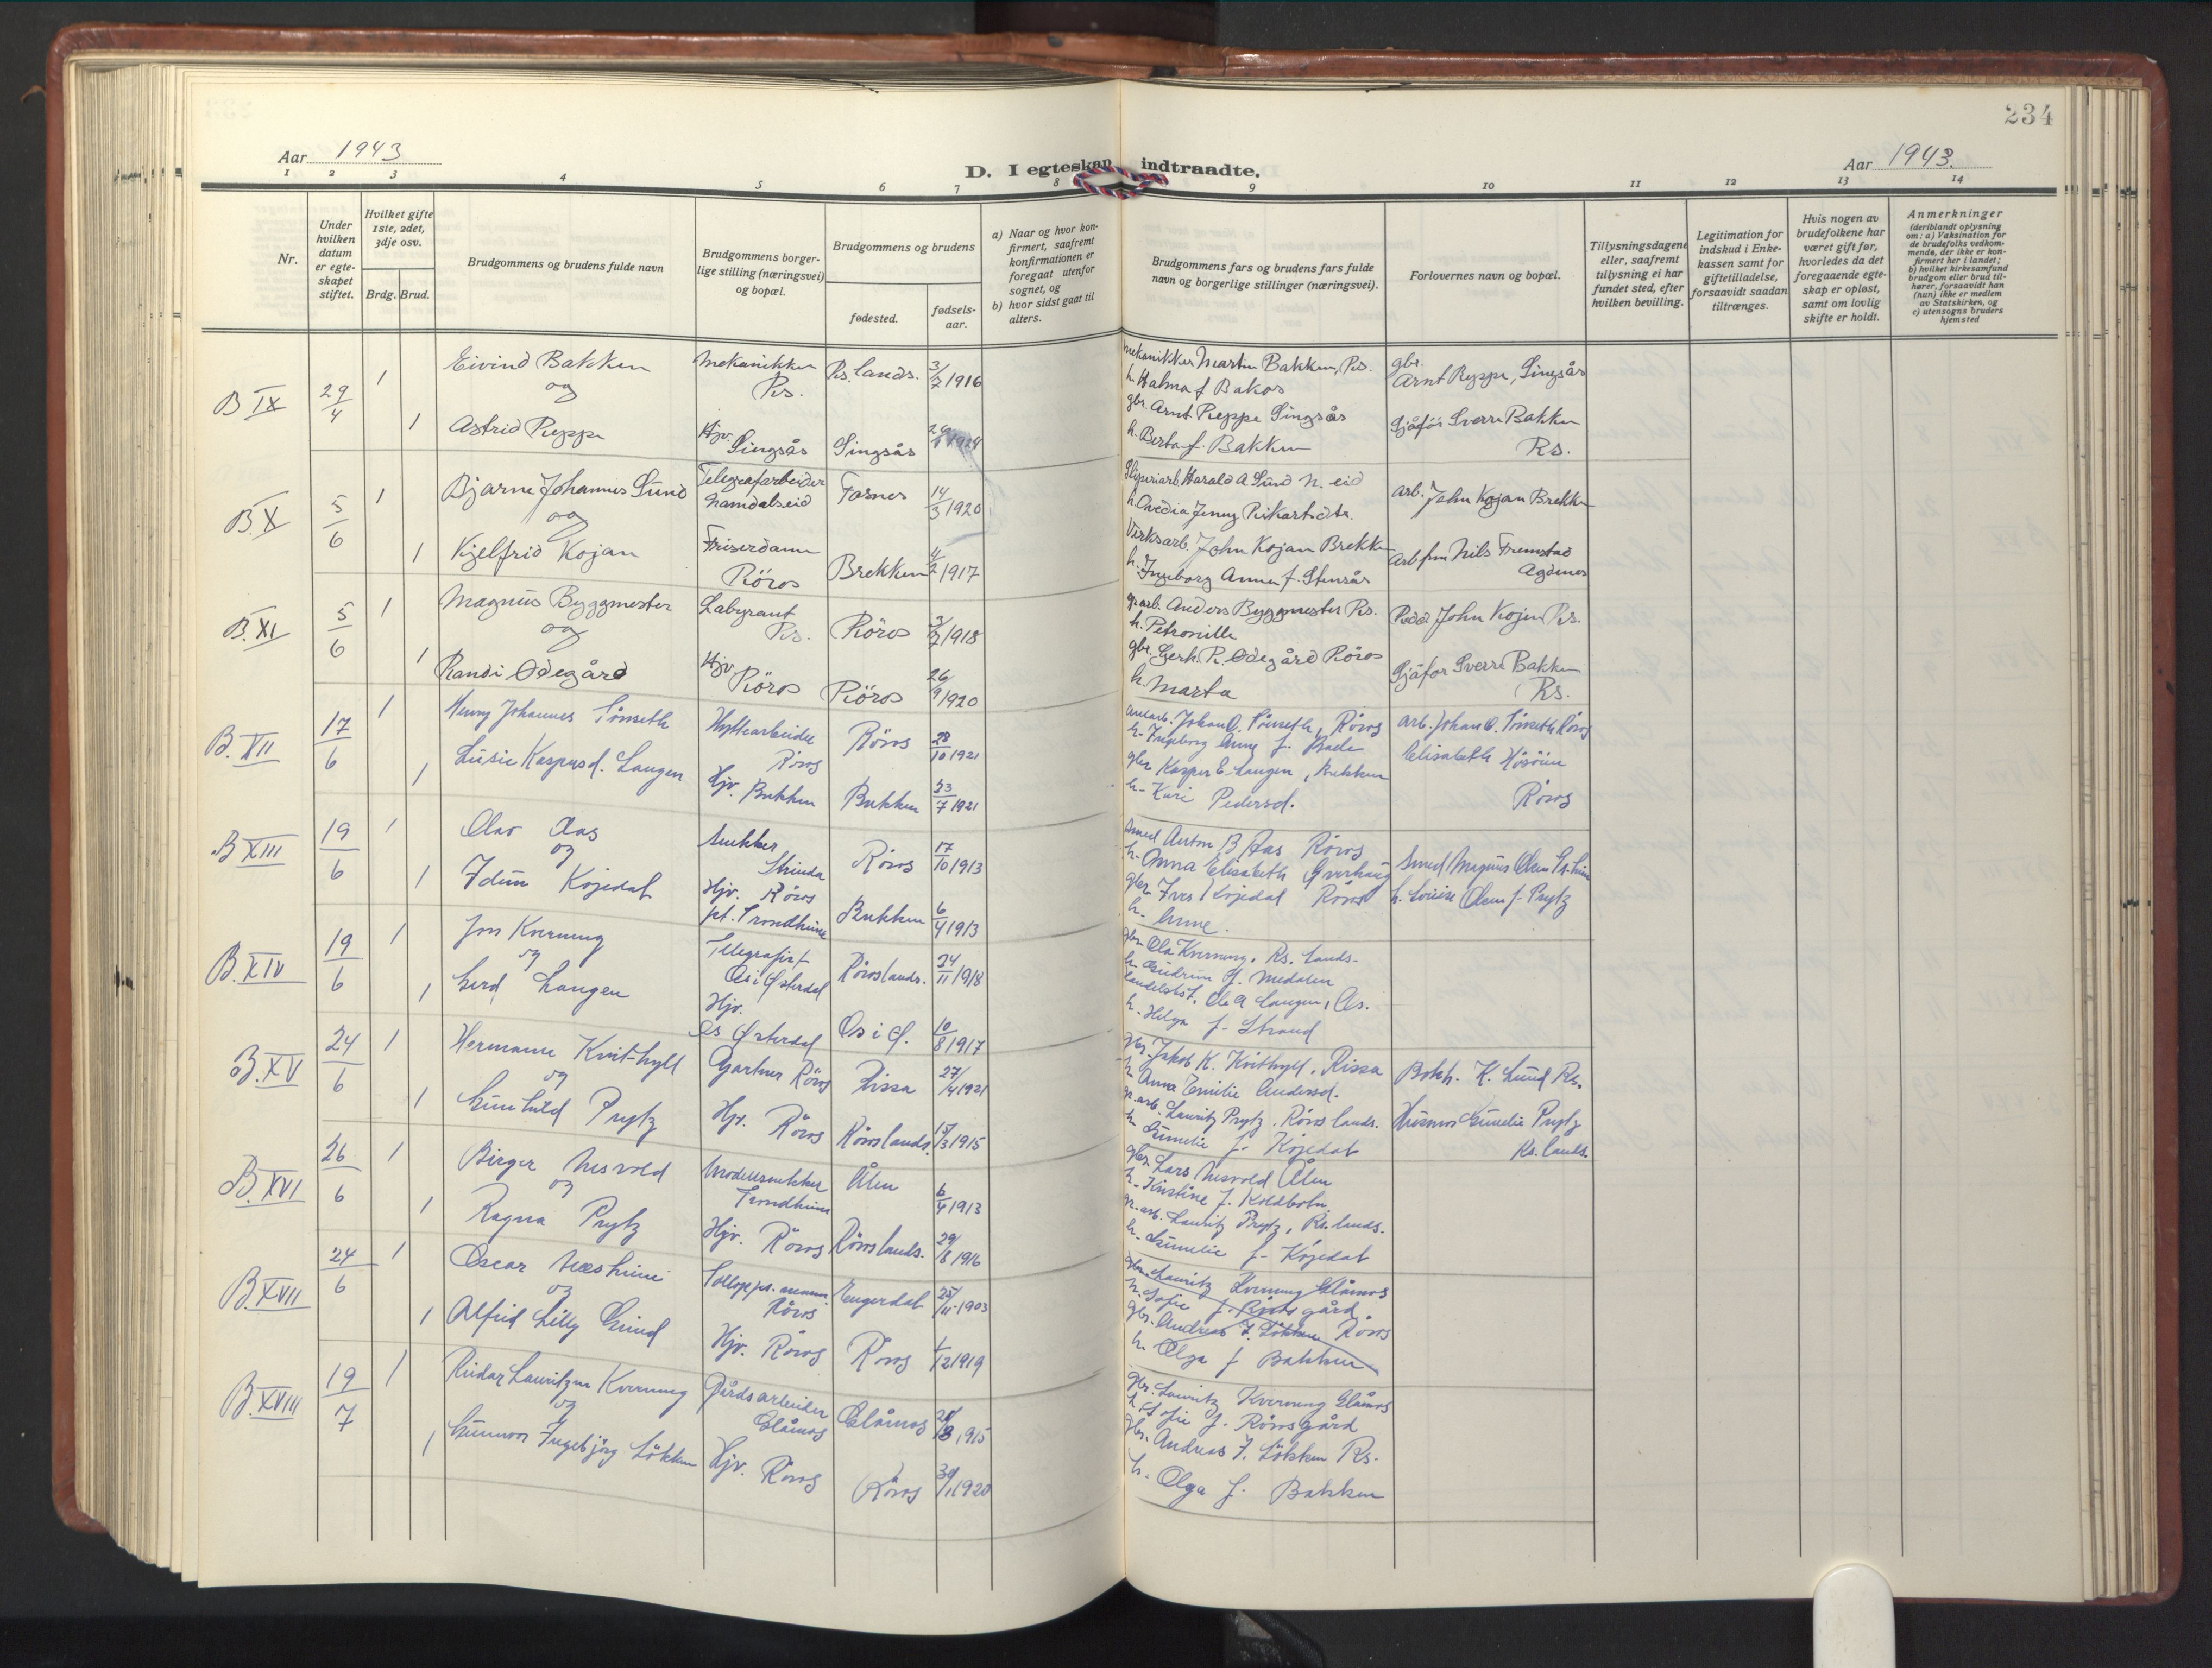 234
Aar 1943
D. I egteskap indtraadte.
Aar 1943.
1 2 3 4 5 6 7 8 9 10 11 12 13 14
Nr.
Under hvilken datum er egteskapet stiftet.
Hvilket gifte 1ste, 2det, 3dje osv.
Brdg. Brud.
Brudgommens og brudens fulde navn
Brudgommens borgerlige stilling (næringsvei) og bopæl.
Brudgommens og brudens
fødested.
fødselsaar.
a) Naar og hvor konfirmert, saafremt konfirmationen er foregaat utenfor sognet, og
b) hvor sidst gaat til alters.
Brudgommens fars og brudens fars fulde navn og borgerlige stillinger (næringsvei).
Forlovernes navn og bopæl.
Tillysningsdagene eller, saafremt tillysning ei har fundet sted, efter hvilken bevilling.
Legitimation for indskud i Enkekassen samt for giftetilladelse, forsaavidt saadan tiltrænges.
Hvis nogen av brudefolkene har været gift før, hvorledes da det foregaaende egteskap er opløst, samt om lovlig skifte er holdt.
Anmerkninger (deriblandt oplysning om: a) Vaksination for de brudefolks vedkommende, der ikke er konfirmert her i landet; b) hvilket kirkesamfund brudgom eller brud tilhører, forsaavidt han (hun) ikke er medlem av Statskirken, og c) utensogns bruders hjemsted
B IX 29/4 1 Eivind Bakken Mekanikker Rs. Rs. lands. 3/7 1916
og
1 Astrid Reppe Hjv. Singsås Singsås 1924
Mekanikker Martin Bakken, Rs.
h. Halma f. Bakos
gbr. Arnt Reppe Singsås
h. Berta f. Bakken
gbr. Arnt Reppe, Singsås
Sjåfør Sverre Bakken Rs.
B.X 5/6 1 Bjarne Johannes Sund Telegrafarbeider Namdalseid Fosnes 14/3 1920
og
1 Kjelfrid Kojan Friserdame Röros Brekken 4/2 1917
Harald A. Sund N. eid
h. Jenny Rikartsdtr.
Verksarb. John Kojan Brekken
h. Ingeborg Anna f. Stensås
arb. John Kojan Brekken
Nils Fremstad Agdenes
B.XI 5/6 1 Magnus Byggmester Rs. Röros 3/7 1918
og
1 Randi Ødegård Hjv. Röros Röros 26/9 1920
gr.arb. Anders Byggmester Rs.
h. Petronille
gbr. Gerh. R. Ødegård Röros
h. Marta
John Kojen Rs.
Sjåfør Sverre Bakken Rs.
B.XII 17/6 1 Henry Johannes Tönseth Hyttearbeider Röros Röros 28/10 1921
1 Lusie Kaspersd. Langen Hjv. Brekken Brekken 23/7 1921
Johan O. Tönseth, Röros
h. Ingeborg Anne f.
gbr. Kasper E. Langen, Brekken
h. Kari Pedersd.
arb. Johan O. Tönseth Röros
Elisabeth Röros
B XIII 19/6 1 Olav Aas Snekker Strinda Röros 17/10 1913
og
1 Idun Kojedal Hjv. Röros pt. Trondheim Brekken 6/4 1913
Smed Anton B. Aas Röros
h. Anna Elisabeth Gverhaug
gbr. Iver Kojedal Röros
h. Anne.
Smed Magnus Olsen
h. Lovise Olsen f. Prytz
B.XIV 19/6 1 Jon Kvernmg Telegrafist Os i Østerdal Röros lands. 24/11 1918
og
1 Gerd Langen Hjv. Os Østerdal Os i Ø. 10/8 1917
gbr. Ola Kvernmg, Rs. lands.
h. Gudrun f. Medalen
Ole A. Langen, Os.
h. Helga f. Strand
B.XV 24/6 1 Hermann Kvithyll Gartner Röros Rissa 27/4 1921
og
1 Gunhild Prytz Hjv. Röros Röros lands. 15/3 1915
gbr. Jakob K. Kvithyll, Rissa
h. Anna Emilie Andersd.
gr.arb. Lauritz Prytz, Röros lands.
h. Gunelie f. Kojedal
Bokh. K. Lund Rs.
Husmor Gunelie Prytz Rs. lands.
B.XVI 26/6 1 Birger Nesvold Modellsnekker Trondheim Ålen 6/4 1913
og
1 Ragna Prytz Hjv. Röros Röros lands. 29/8 1916
gbr. Lars Nesvold Ålen
h. Kristine f. Koldbotn
gr.arb. Lauritz Prytz, Rs. lands.
h. Gunelie f. Kojedal
B.XVII 24/6 1 Oscar Röros Engerdal 25/11 1903
og
1 Alfrid Lilly Grind Hjv. Röros Röros 1/12 1919
gbr. Lauritz Kvernmg Glåmos
h. Sofie f. Rörosgård.
gbr. Andreas J. Lökken Röros
h. Olga f. Bakken
B.XVIII 19/7 1 Reidar Lauritzen Kvernmg Gårdsarbeider Glåmos Glåmos 1915
og
1 Gunvor Ingebjörg Lökken Hjv. Röros Röros 30/1 1920
gbr. Lauritz Kvernmg Glåmos
h. Sofie f. Rörosgård
gbr. Andreas J. Lökken Rs.
h. Olga f. Bakken